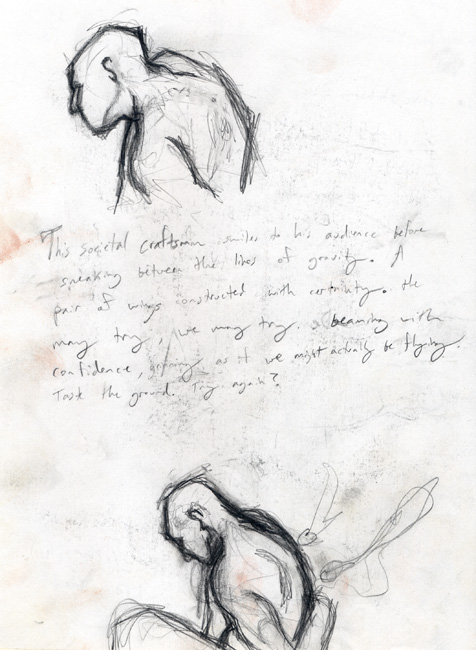 This societal craftsman smiles to his audience before
speaking between the lines of gravity. A
pair of wings constructed with certainty. He
may try, we may try. beaming with
confidence, grinning as if we might actually be flying.
Taste the ground. Try again?